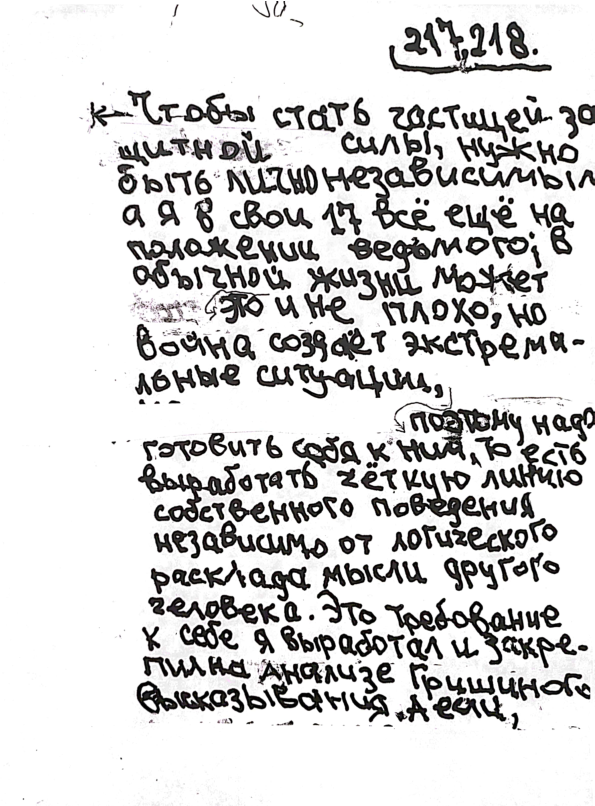 217,218.
Чтобы стать частицей за
щитной силы, нужно
быть лично независимым
а я в свои 17 всё ещё на
положении ведомого; в
обычной жизни может
это и не плохо, но
война создаёт экстрема-
льные ситуации,
поэтому надо
готовить себя к ним, то есть
выработать чёткую линию
собственного поведения
независимо от логического
расклада мысли другого
человека. Это требование
к себе я выработал и закре-
пил на анализе Гришиного
высказывания. А если,